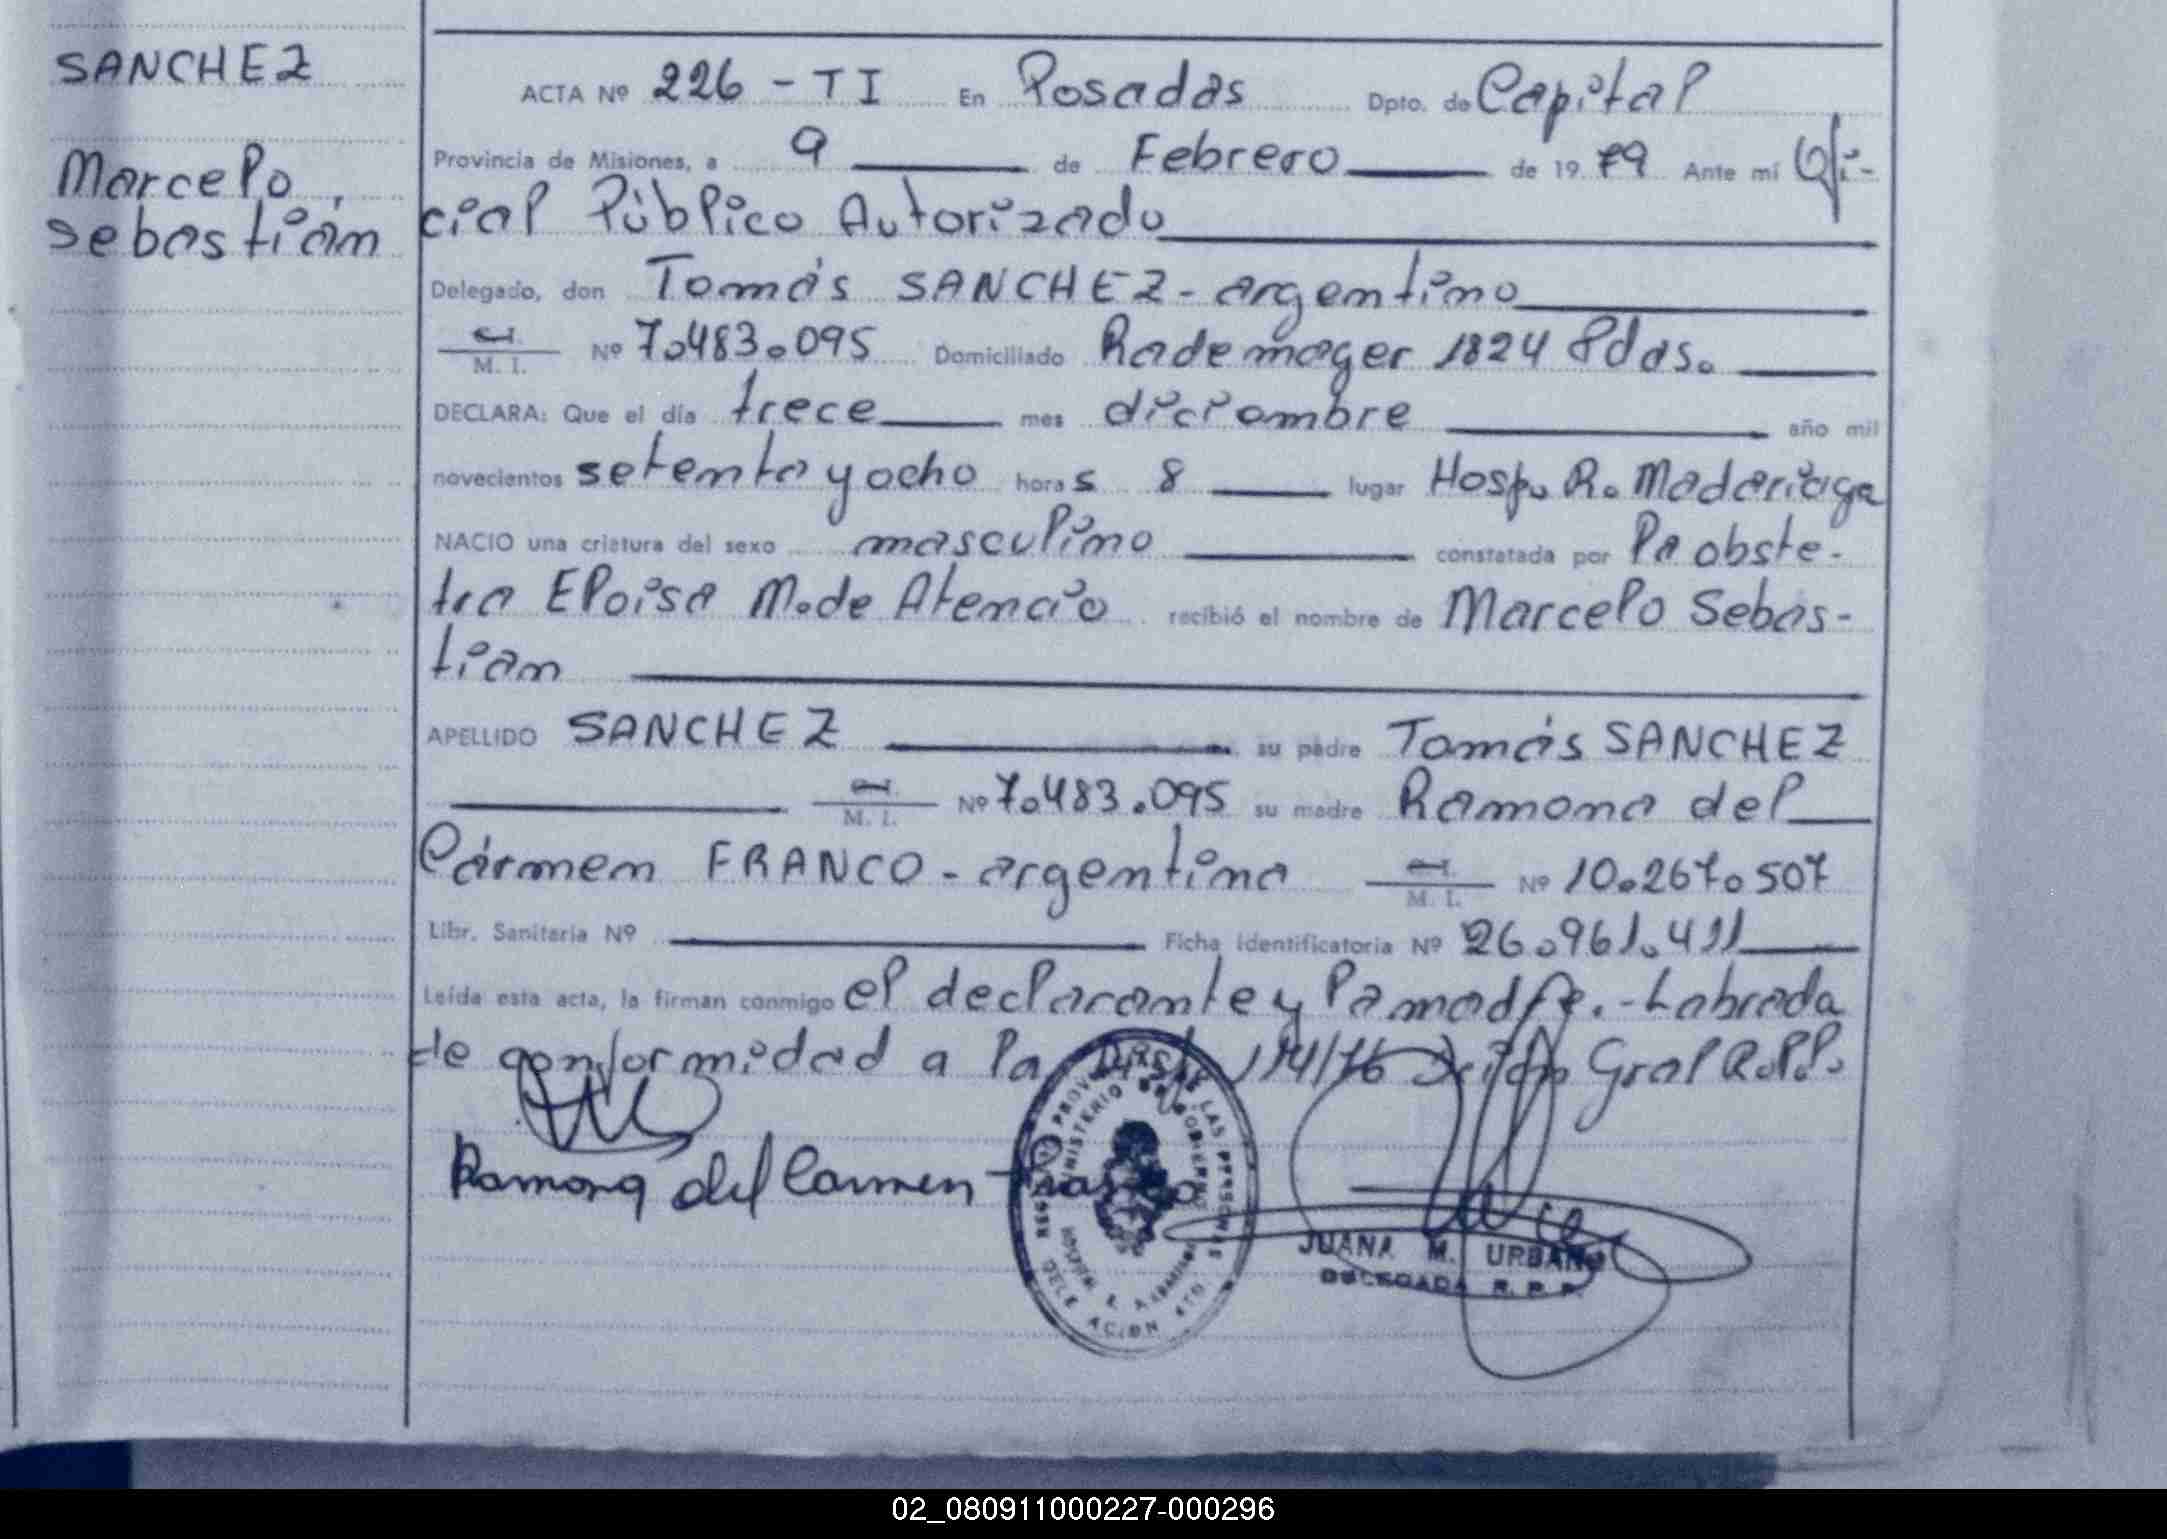 SANCHEZ
Marcelo
Sebastián
ACTA Nº 226 - TI En Posadas Dpto. de Capital
Provincia de Misiones, a 9 de Febrero de 1979 Ante mí Ofi-
cial Público Autorizado
Delegado, don Tomás SANCHEZ - argentino
M. I. Nº 7.483.095 Domiciliado Rademager 1824 Pdas.
DECLARA: Que el día trece mes diciembre año mil
novecientos setenta y ocho horas 8 lugar Hosp. R. Madariaga
NACIO una criatura del sexo masculino constatada por la obste-
tra Eloisa M. de Atencio recibió el nombre de Marcelo Sebas-
tian
APELLIDO SANCHEZ su padre Tomás SANCHEZ
M. I. Nº 7.483.095 su madre Ramona del
Cármen FRANCO - argentina M. I. Nº 10.267.507
Libr. Sanitaria Nº Ficha identificatoria Nº 26.961.411
Leída esta acta, la firman conmigo el declarante y la madre. - Labrada
de conformidad a la 114/76 Gral R.P.P.
Ramona del Carmen Franco
REG PROV DE LAS PERSONAS
MINISTERIO DE GOBIERNO
JUANA M. URBANO
DELEGADA R. P. P.
02_080911000227-000296